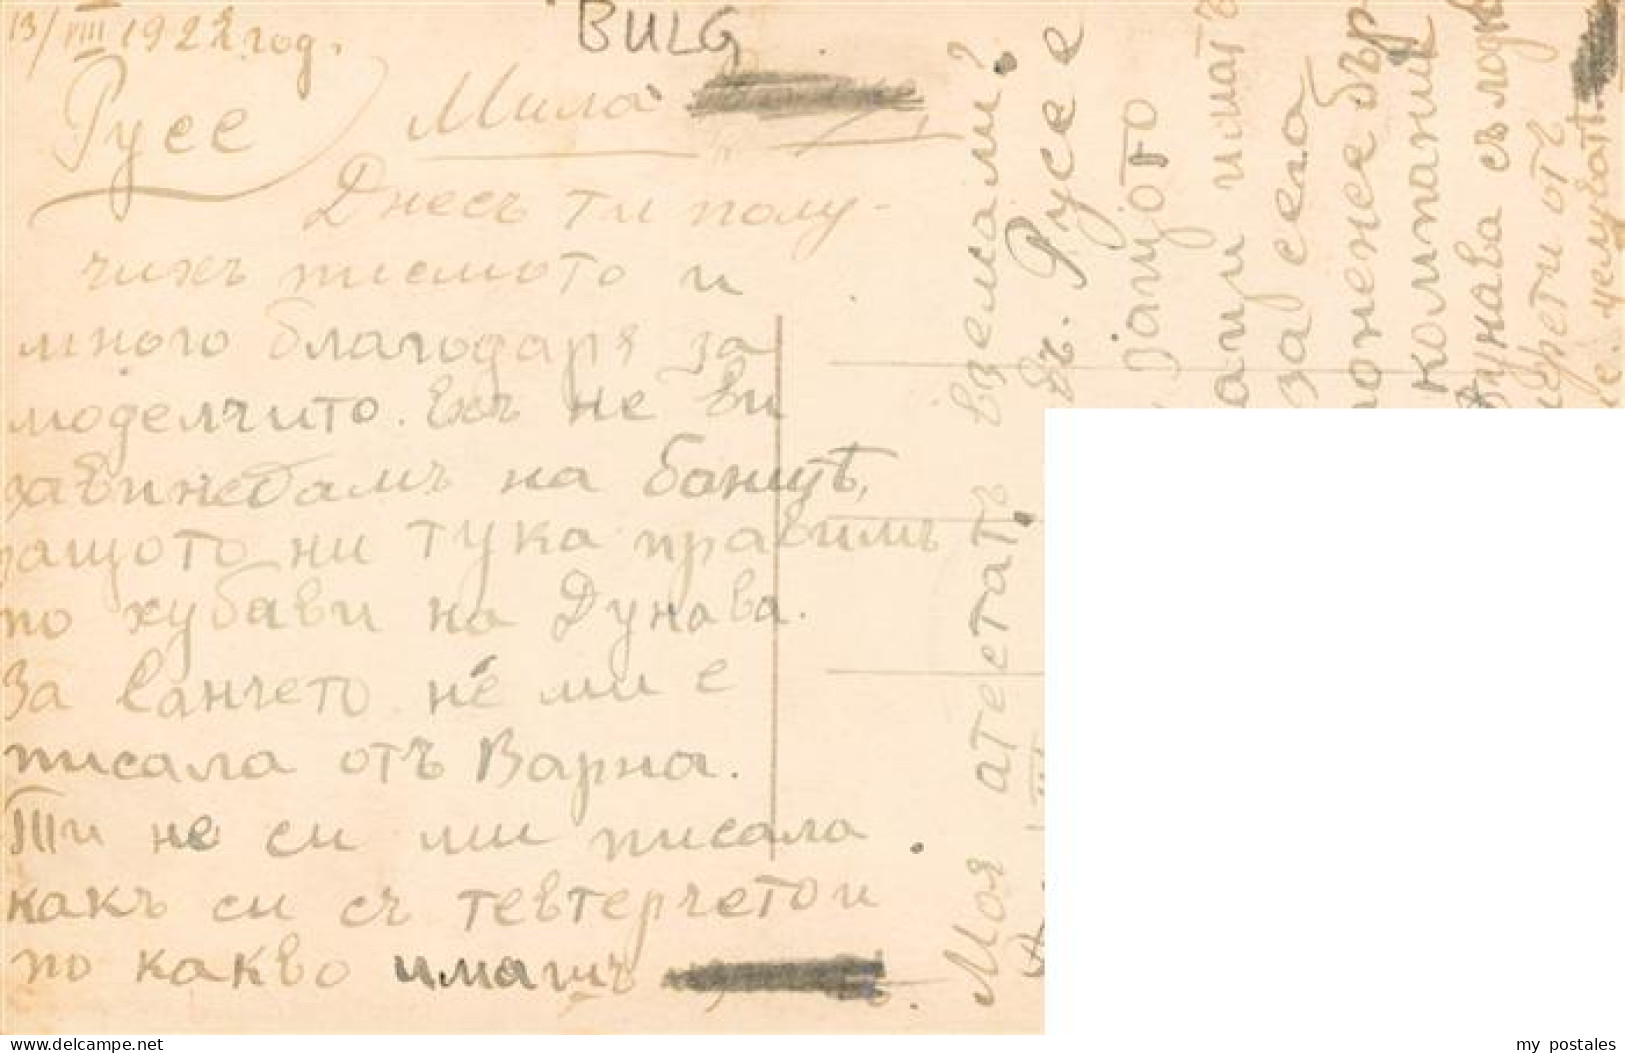 13/VIII 1922 год.
BULG
Русе
Мила
Днесъ ти полу-
чихъ писмото и
много благодаря за
моделчито. Ехъ не ви
завинебамъ на баницѣ,
защото ни тука правимъ
по хубави на Дунава.
За Ванчето не ми е
писала отъ Варна.
Ти не си ми писала
какъ си съ тевтерчето и
по какво имашъ
Моя атестатъ вземами?
въ. Русе
защото
иматъ
за село
понеже бър
компании
Дунава съ лодк
отъ
целуватъ
delcampe.net
my_postales